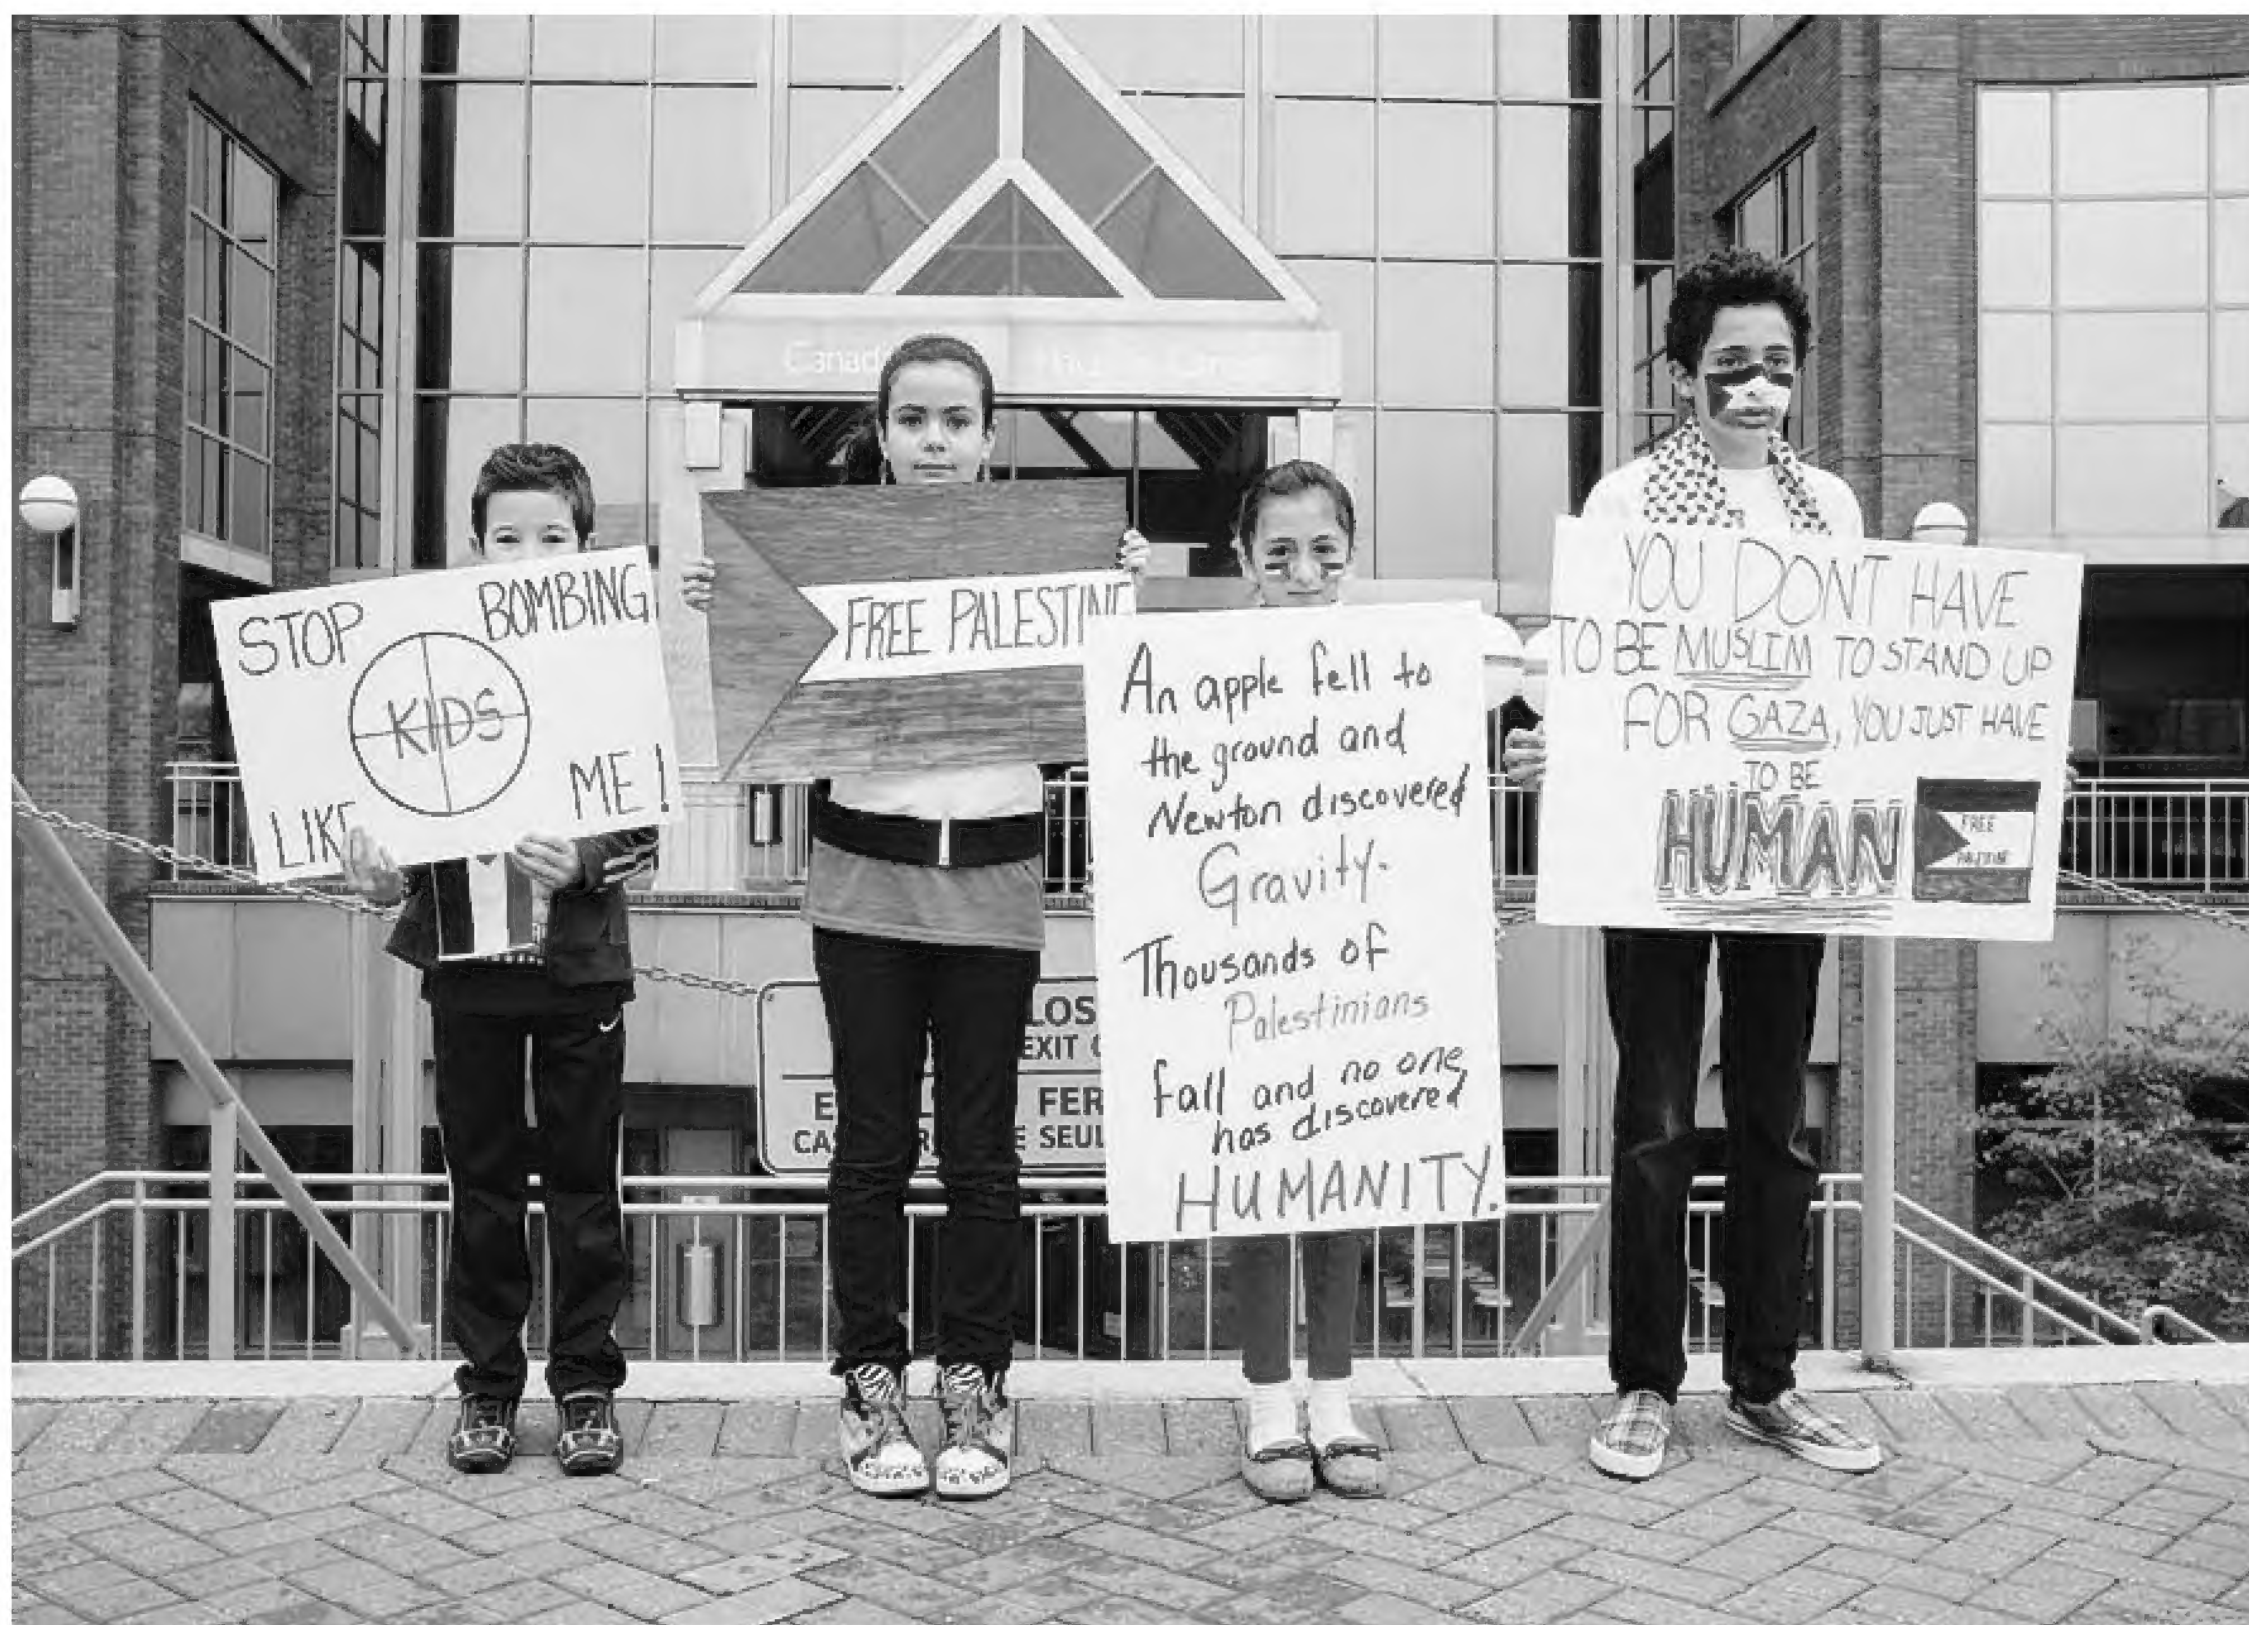 Canad
STOP BOMBING
KIDS
LIKE ME!
FREE PALESTINE
An apple fell to
the ground and
Newton discovered
Gravity.
Thousands of
Palestinians
fall and no one
has discovered
HUMANITY.
YOU DONT HAVE
TO BE MUSLIM TO STAND UP
FOR GAZA, YOU JUST HAVE
TO BE
HUMAN
FREE
PALESTINE
LOS
EXIT
FER
SEUL